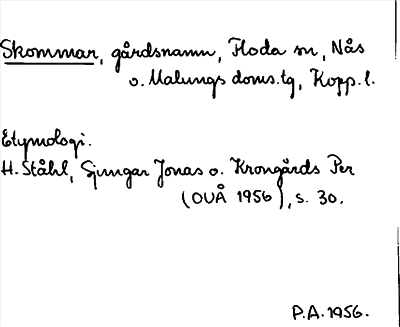 Skommar, gårdsnamn, Floda sn, Nås
o. Malungs doms.tg, Kopp. l.
Etymologi.
H. Ståhl, Gjungar Jonas o. Krongårds Per
(OUÅ 1956), s. 30.
P.A. 1956.